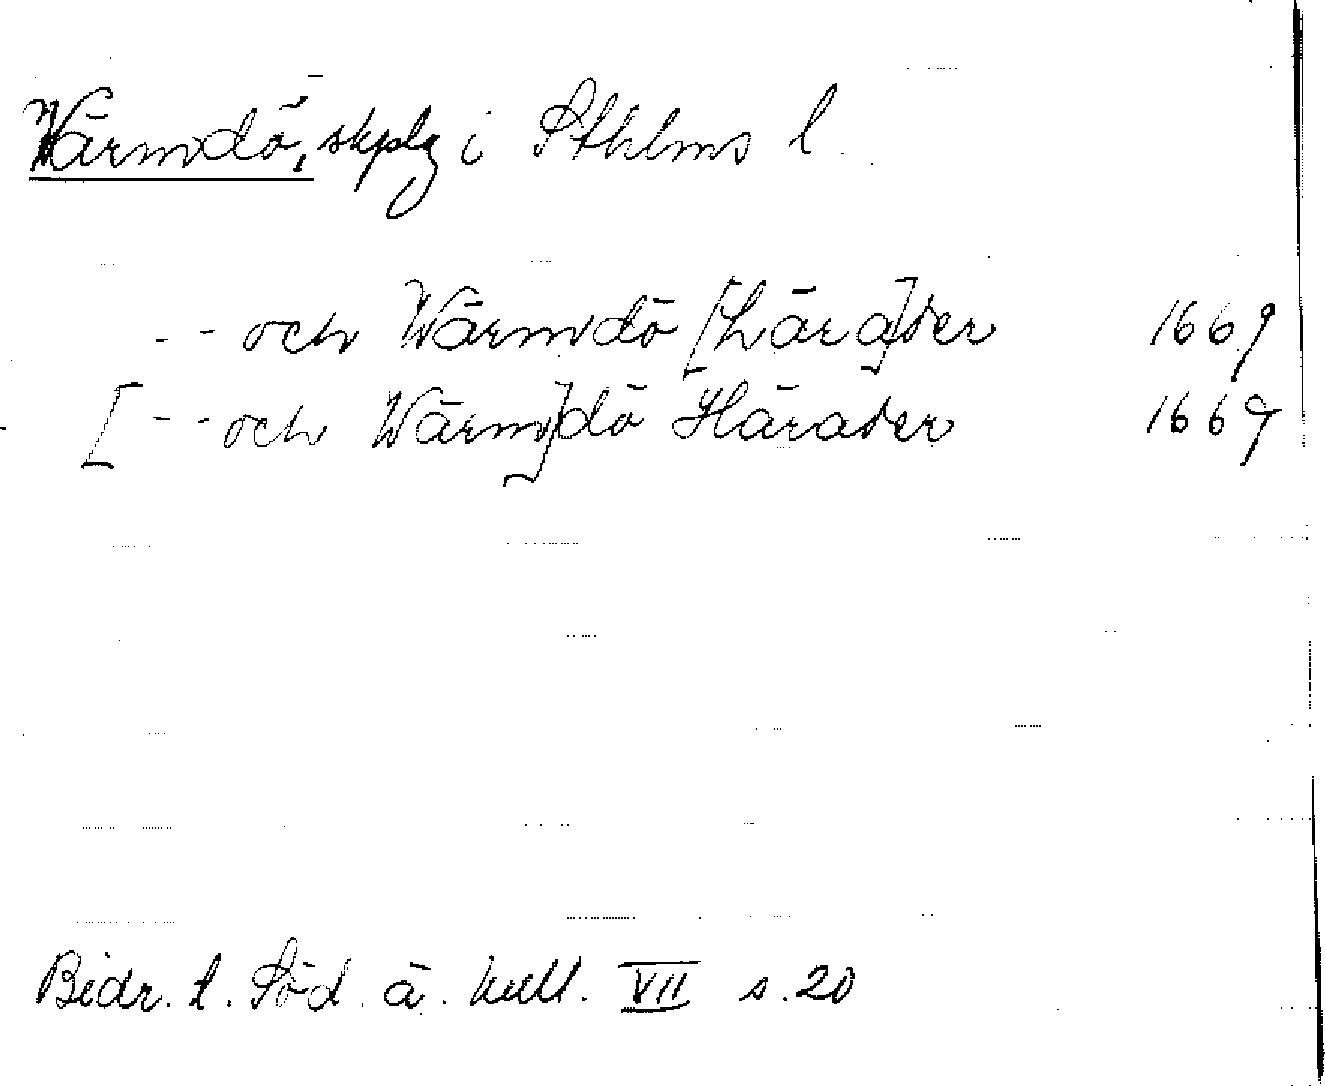 Wärmdö, skplg i Sthlms l.
- - och Wärmdö [Hära]der 1669
[- - och Wärm]dö Härader 1669
Bidr. t. Söd. ä. kult. VII s. 20